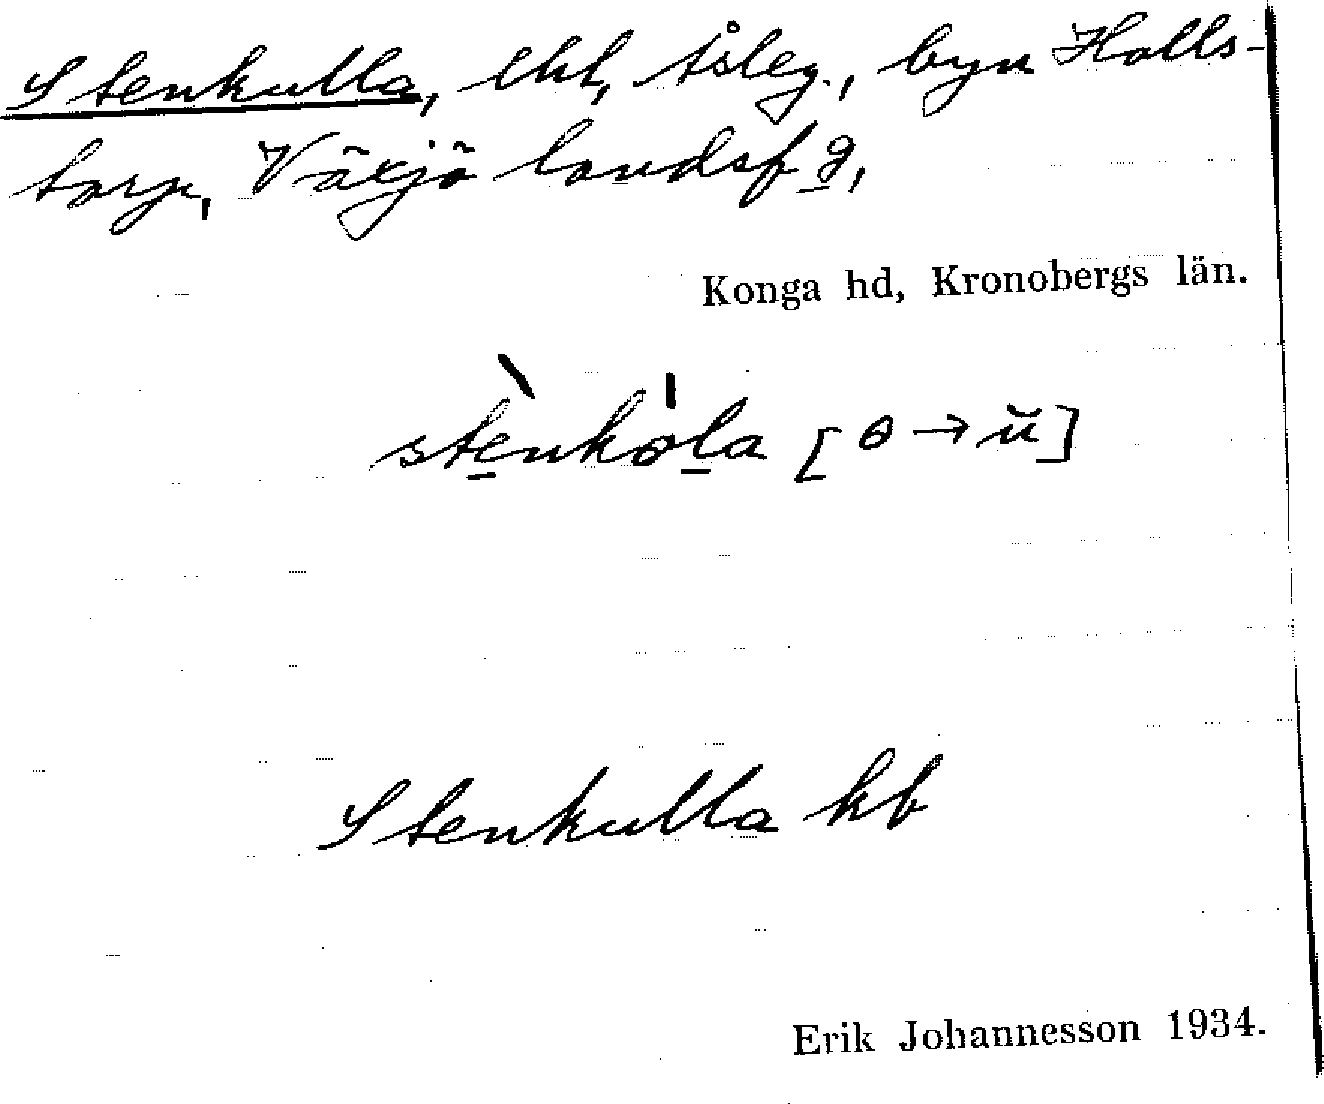 Stenkulla, lht, åsleg., byn Holls-
torp, Växjö landsf g,
Konga hd, Kronobergs län.
stènkòla [ɵ → ŭ]
Stenkulla kb
Erik Johannesson 1934.